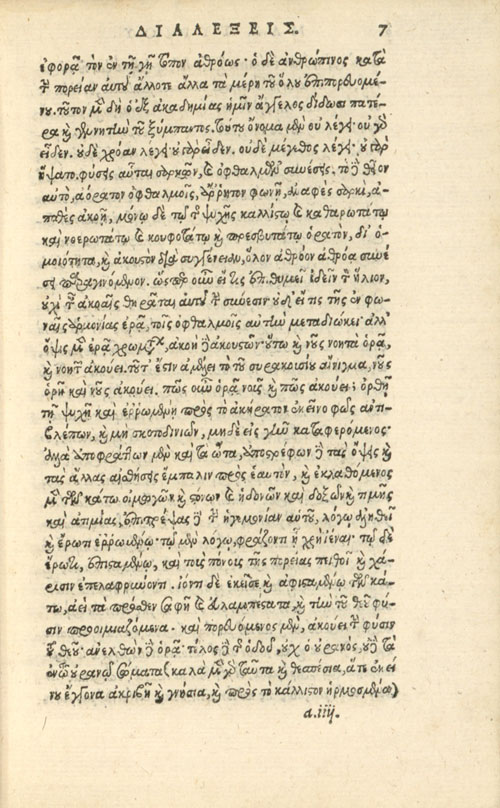 ΔΙΑΛΕΞΕΙΣ. 7
ἐφορᾷ τὸν ἐν τῇ γῇ τόπον ἀθρόως· ὁ δὲ ἀνθρώπινος κατὰ
τ̀ πορείαν αὐτοῦ ἄλλοτε ἄλλα τὰ μέρη τοῦ ὅλου ἐπιπορευομέ-
νου. τοῦτον μὲν δὴ ὁ ἐξ ἀκαδημίας ἡμῖν ἄγγελος δίδωσι πατέ-
ρα καὶ γεννητὴν τοῦ ξύμπαντος. τούτου ὄνομα μὲν οὐ λέγει· οὐ γὰρ
εἶδεν. οὐδὲ χρόαν λέγει· οὐ γὰρ εἶδεν. οὐδὲ μέγεθος λέγει· οὐ γὰρ
ἥψατο. φύσεις αὗται σαρκῶν, καὶ ὀφθαλμῶν συνέσεις. τὸ δὲ θεῖον
αὐτὸ, ἀόρατον ὀφθαλμοῖς, ἄρρητον φωνῇ, ἀναφὲς σαρκὶ, ἀ-
παθὲς ἀκοῇ, μόνῳ δὲ τῷ τῆς ψυχῆς καλλίστῳ καὶ καθαρωτάτῳ
καὶ νοερωτάτῳ καὶ κουφοτάτῳ καὶ πρεσβυτάτῳ ὁρατὸν, δι' ὁ-
μοιότητα, καὶ ἀκουστὸν διὰ συγγένειαν, ὅλον ἀθρόον ἀθρόα συνέ-
σει παραγινόμενον. ὥσπερ οὖν εἴ τις ἐπιθυμεῖ ἰδεῖν τὸν ἥλιον,
οὐχὶ ταῖς ἀκοαῖς θηρᾶται αὐτοῦ τὴν σύνεσιν· οὐδ' εἴ τις τῆς ἐν φω-
ναῖς ἁρμονίας ἐρᾷ, τοῖς ὀφθαλμοῖς αὐτὴν μεταδιώκει· ἀλλ'
ὄψις μὲν ἐρᾷ χρωμάτων, ἀκοὴ δὲ ἀκουστῶν· οὕτω καὶ νοῦς νοητὰ ὁρᾷ,
καὶ νοητῶν ἀκούει. τοῦτ' ἔστιν ἀμέλει τὸ τοῦ συρακουσίου αἴνιγμα, νοῦς
ὁρῇ καὶ νοῦς ἀκούει. πῶς οὖν ὁρᾷ νοῦς καὶ πῶς ἀκούει; ὀρθῇ
τῇ ψυχῇ καὶ ἐρρωμένῃ πρὸς τὸ ἀκήρατον ἐκεῖνο φῶς ἀντι-
βλέπων, καὶ μὴ σκοτοδινιῶν, μηδὲ εἰς γῆν καταφερόμενος·
ἀλλὰ ἀποφράττων μὲν καὶ τὰ ὦτα, ἀποστρέφων δὲ τὰς ὄψεις καὶ
τὰς ἄλλας αἰσθήσεις ἔμπαλιν πρὸς ἑαυτὸν, καὶ ἐκλαθόμενος
μὲν τῶν κάτω οἰμωγῶν καὶ στόνων καὶ ἡδονῶν καὶ δοξῶν καὶ τιμῆς
καὶ ἀτιμίας, ἐπιτρέψας δὲ τὴν ἡγεμονίαν αὐτοῦ, λόγῳ ἀληθεῖ
καὶ ἔρωτι ἐρρωμένῳ· τῷ μὲν λόγῳ, φράζοντι ᾗ χρὴ ἰέναι· τῷ δὲ
ἔρωτι, ἐπισταμένῳ, καὶ τοὺς πόνους τῆς πορείας πειθοῖ καὶ χά-
ρισιν ἐπελαφρύνοντι. ἰόντι δὲ ἐκεῖσε καὶ ἀφισταμένῳ τῶν κά-
τω, ἀεὶ τὰ πρόσθεν σαφῆ καὶ ἀναλαμπέστατα, καὶ τὴν τοῦ θεοῦ φύ-
σιν προοιμιαζόμενα. καὶ πορευόμενος μὲν, ἀκούει τὴν φύσιν
τοῦ θεοῦ· ἀνελθὼν δὲ ὁρᾷ· τέλος δὲ τῆς ὁδοῦ, οὐχ ὁ οὐρανὸς, οὐδὲ τὰ
ἐν τῷ οὐρανῷ σώματα (καλὰ μὲν γὰρ ταῦτα καὶ θεσπέσια, ἅτε ἐκεί
νου ἔγγονα ἀκριβῆ καὶ γνήσια, καὶ πρὸς τὸ κάλλιστον ἡρμοσμένα)
a.iiij.